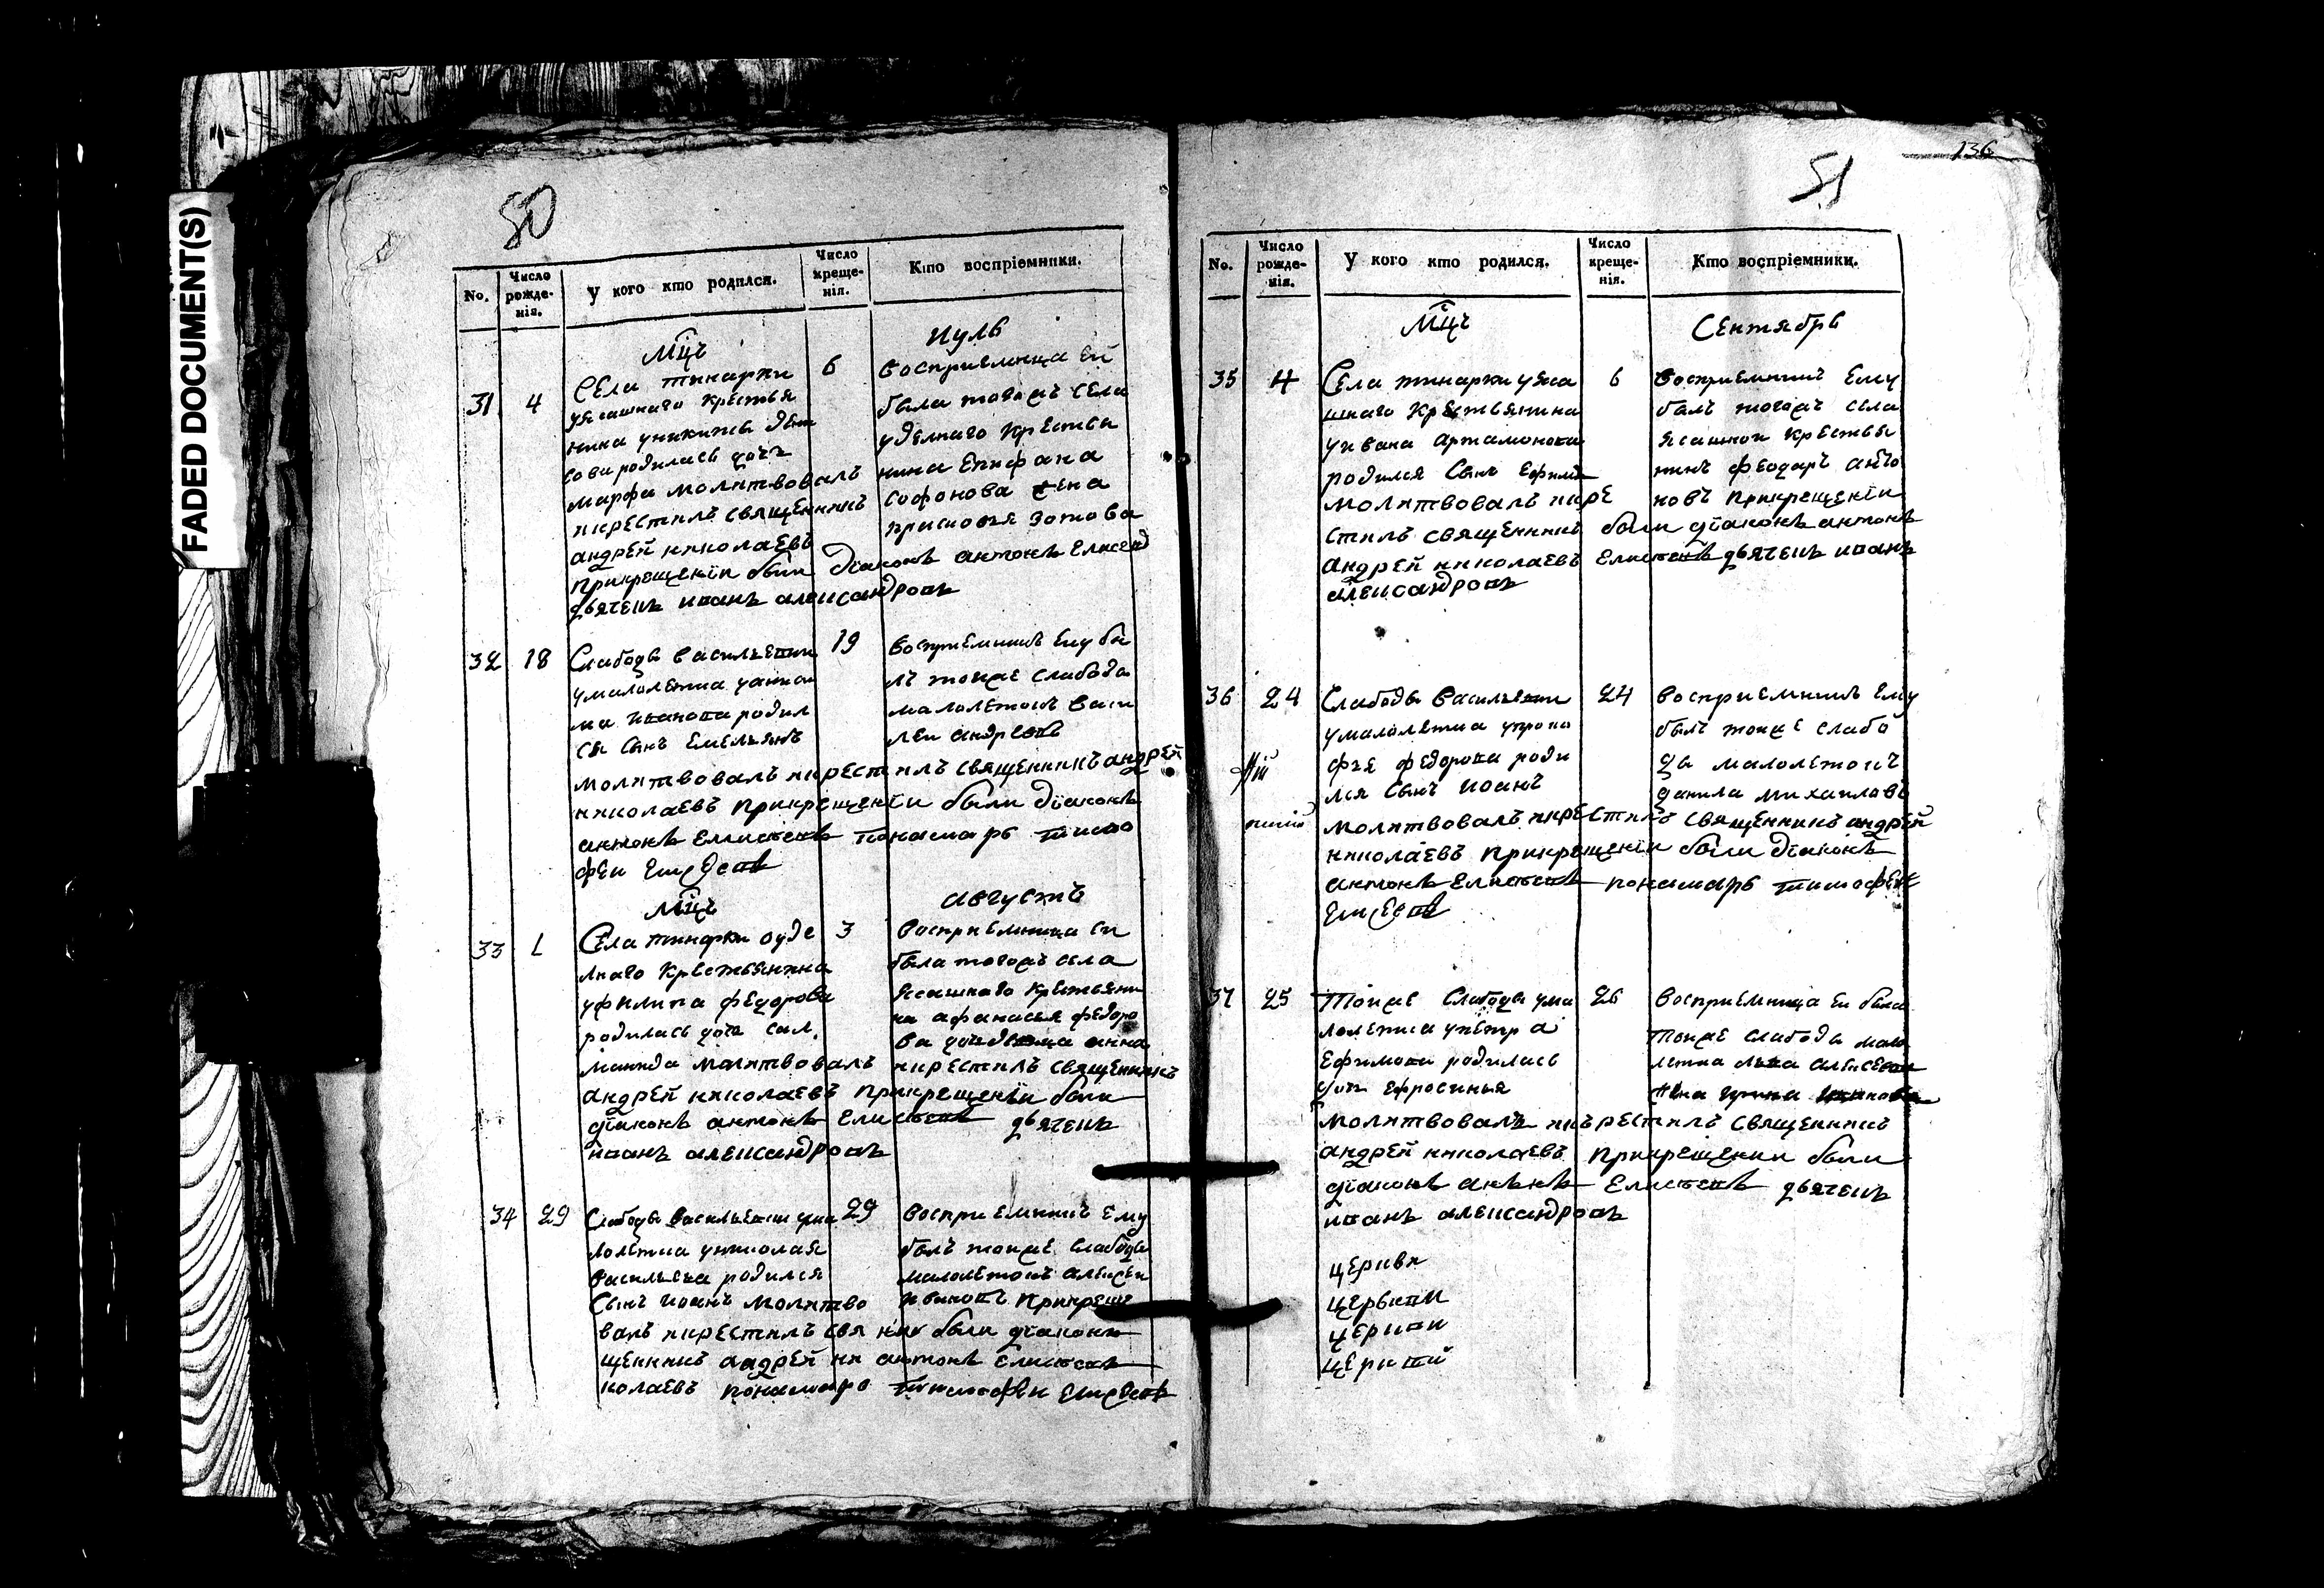 FADED DOCUMENT(S)
50
No.
Число рожде- нія.
У кого кто родился.
Число креще- нія.
Кто воспріемники.
Мцъ Иуль
31 4
Села тинарки
уясашнаго крестья
нина
родилась дочь
марфа молитвовалъ
икрестилъ священникъ
андрей николаевъ
прикрещенїи были
дьячекъ иванъ александровъ
6
восприемница ей
была тогожъ села
уделнаго крестья
нина Епифана
софонова жена
зотова
дїаконъ антонъ
32 18
Слабоды василевки
умалолетка
ма иванова родил
ся сынъ Емельянъ
молитвовалъ икрестилъ священникъ андрей
николаевъ прикрещенїи были дїаконъ
антонъ Елисеевъ понамарь тимо
феи
19
восприемникъ ему бы
лъ тоиже слабода
малолетокъ васи
леи андреевъ
Мцъ августъ
33
Села тинарки оуде
лнаго крестьянина
уфилипа федорова
родилась дочь сал.
манида молитвовалъ икрестилъ священникъ
андрей николаевъ прикрещенїи были
дїаконъ антонъ Елисеевъ дьячекъ
иванъ александровъ
3
восприемница еи
была тогожъ села
ясашнаго крестьяни
на афанасья федоро
ва анна
34 29
Слабоды василевки ума
лолетка униколая
васильева родился
сынъ иоанъ молитво
валъ икрестилъ свя
щенникъ андрей ни
колаевъ понамарь тимофеи
29
восприемникъ ему
былъ тоиже слабоды
малолетокъ алексеи
ивановъ прикреще
нии были дїаконъ
антонъ Елисеевъ
136
51
No.
Число рожде- нія.
У кого кто родился.
Число креще- нія.
Кто воспріемники.
Мцъ Сентябрь
35 4
Села тинарки уяса
шнаго крестьянина
уивана артамонова
родился сынъ Ефимъ
молитвовалъ икре
стилъ священникъ
андрей николаевъ
александровъ
6
восприемникъ ему
былъ тогожъ села
ясашнои крестья
нинъ феодаръ анто
новъ прикрещенїи
были дїаконъ антонъ
Елисеевъ дьячекъ иванъ
36 24
Слабоды василевки
умалолетка упроко
фья федорова роди
лся сынъ иоанъ
молитвовалъ икрестилъ священникъ андрей
николаевъ прикрещенїи были дїаконъ
антонъ Елисеевъ понамарь тимофеи
24
восприемникъ ему
былъ тоиже слабо
ды малолетокъ
данила михаиловъ
37 25
Тоиже слабоды ума
лолетка упетра
Ефимова родилась
дочь Ефросинья
молитвовалъ икрестилъ священникъ
андрей николаевъ прикрещении были
дїаконъ Елисеевъ дьячекъ
иванъ александровъ
26
восприемница еи была
тоиже слабоды мало
летка алексеева
жена
церкви
церькви
церкви